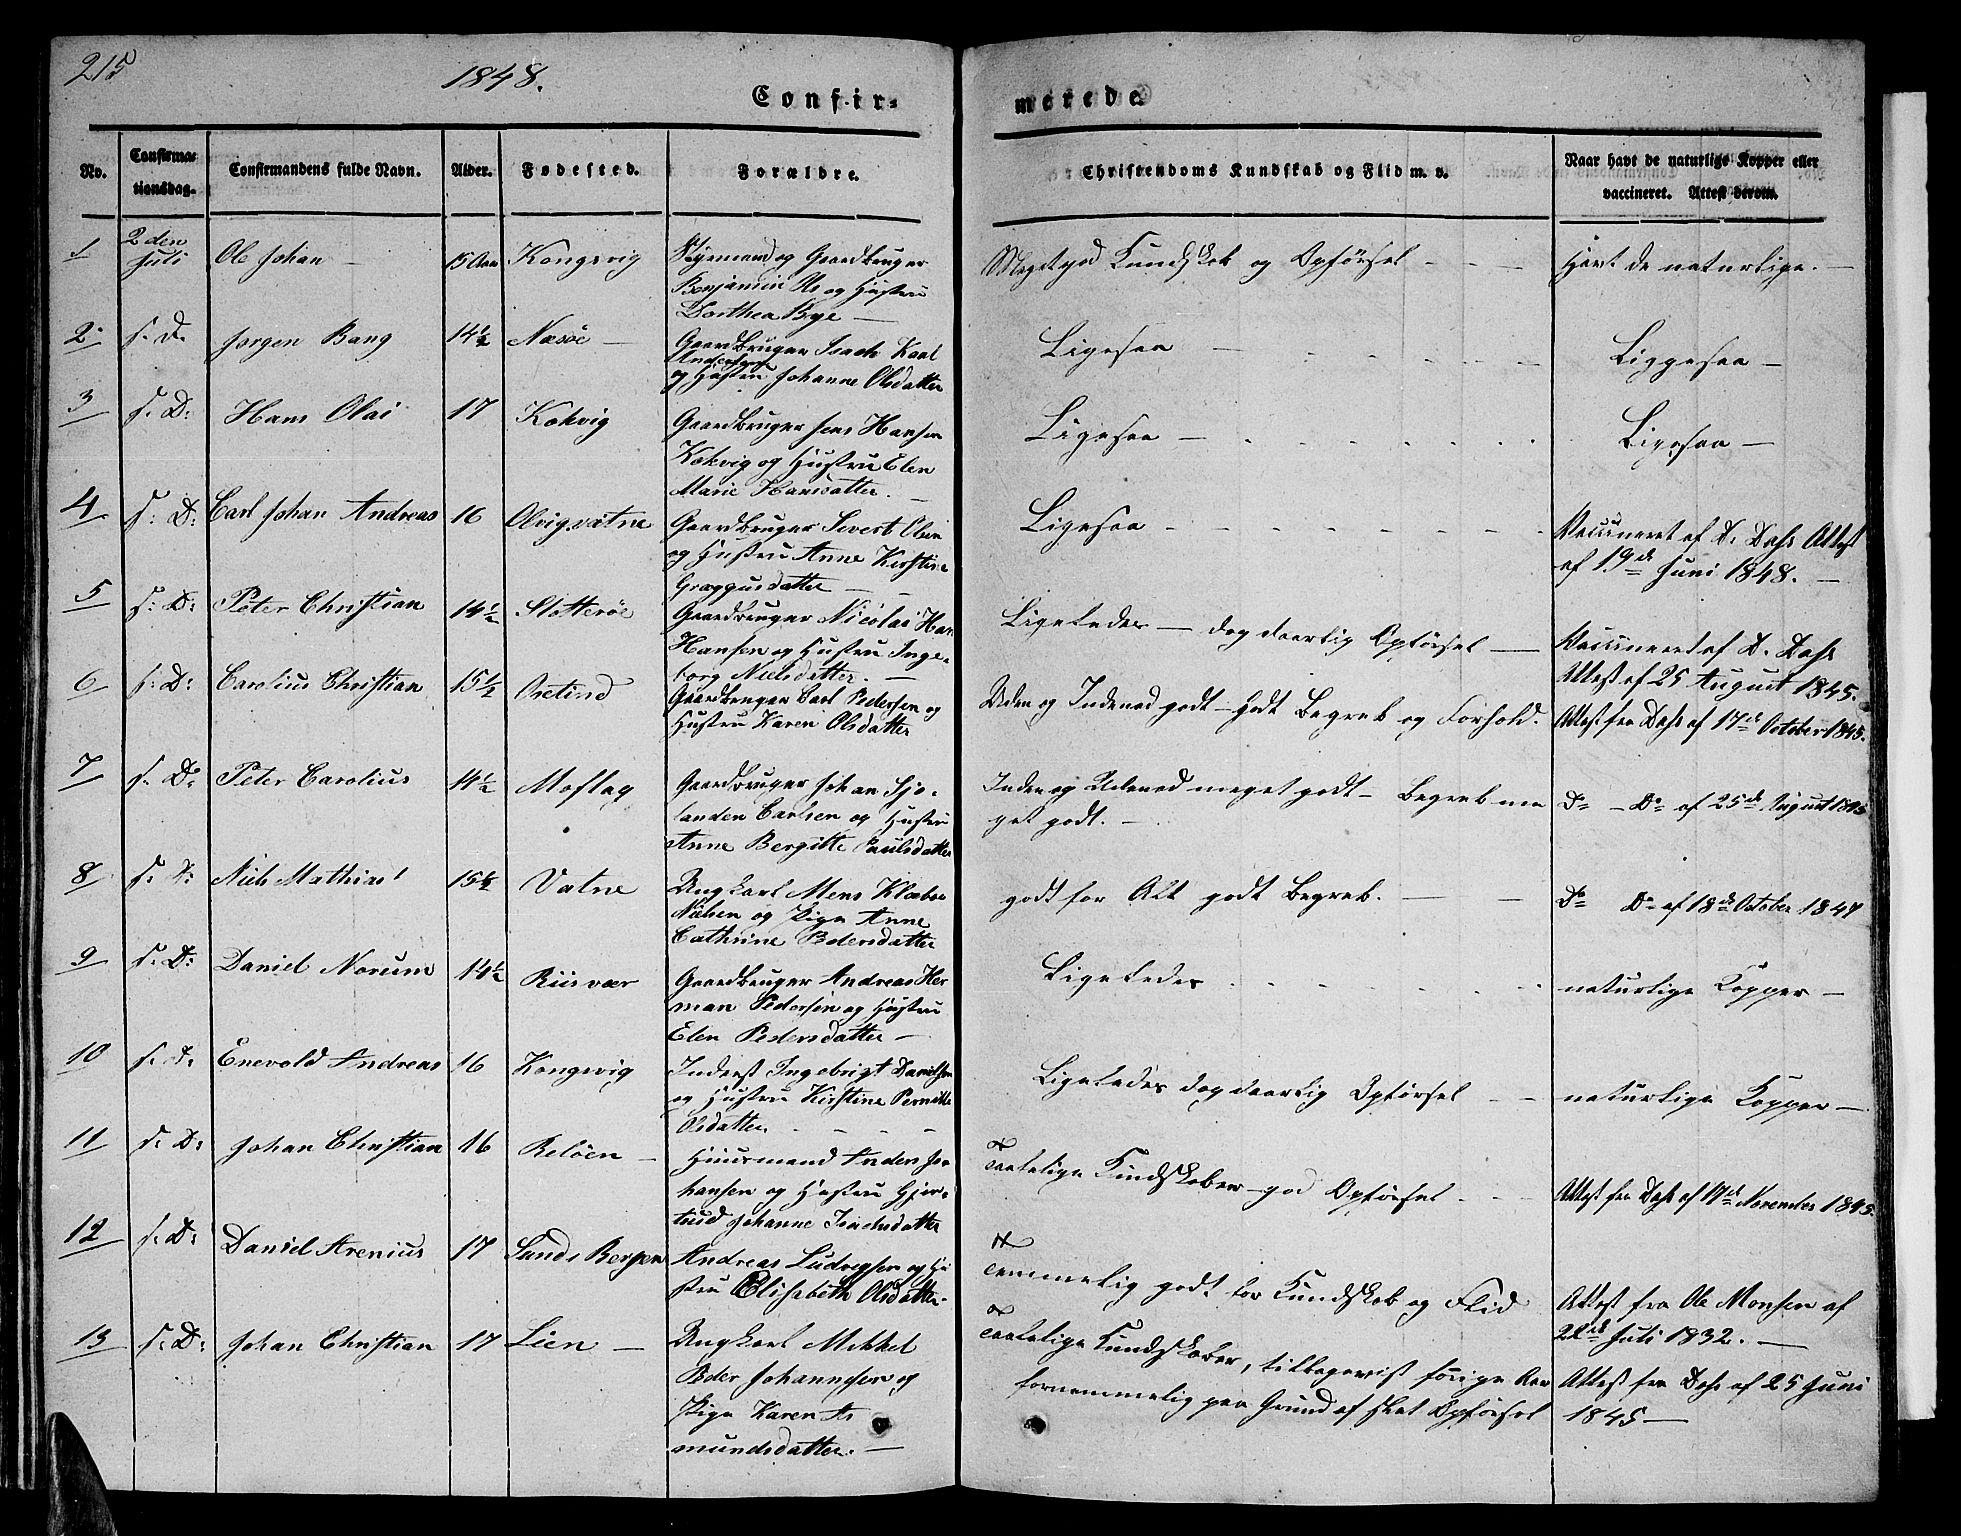 215
1848.
Confir-
merede
No.
Confirma-
tionsdag.
Confirmandens fulde Navn.
Alder.
Fødested.
Forældre.
Christendoms Kundskab og Flid m. v.
Naar havt de naturlige Kopper eller
vaccineret. Attest derom.
1
2den
Juli
Ole Johan —
15 Aar
Kongsvig
og Gaardbruger
Benjamin Ols og Hustru
Dorthea Bye —
Meget god Kundskab og Opførsel - - -
Havt de naturlige. —
2
s. D.
Jørgen Bang
14½
Næsøe —
Gaardbruger Isach Karl
Andersen
og Hustru Johanne Olsdatter
Ligesaa —
Liggesaa —
3
s. D:
Hans Olai
17
Kokvig
Gaardbruger Jens Hansen
Kokvig og Hustru Elen
Marie Hansdatter. —
Ligesaa —
Ligesaa —
4
s: D:
Carl Johan Andreas
16
Olvigvatne
Gaardbruger Sivert Olsen
og Hustru Anne Kirstine
Greggusdatter —
Ligesaa -
Vaccineret af D. Dahs Attest
af 19de Juni 1848. —
5
s: D:
Peter Christian
14½
Slotterøe
Gaardbruger Nicolai Han
Hansen og Hustru Inge-
borg Nielsdatter. —
Ligeledes — dog daarlig Opførsel —
Vaccineret af D. Dahs
Attest af 25 August 1845.
6
s: D:
Carolius Christian
15½
Oxtind
Gaardbruger Carl Pedersen og
Hustru Karen Olsdatter
Uden og Indenad godt - Godt Begreb og Forhold.
Attest fra Dahs af 17de October 1845.
7
s. D:
Peter Carolius
14½
Moflag
Gaardbruger Johan Sjo-
landen Carlsen og Hustru
Anne Bergitte Paulsdatter
Inden og Udenad meget godt — Begreb me
get godt. —
Do — Do af 25de August 1845
8
s: D:
Niels Mathias
15½
Vatne
Ungkarl Mens Klæboe
Nielsen og Pige Anne
Cathrine Pedersdatter
godt for Alt godt Begreb. —
Do Do af 18de October 1847
9
s: D:
Daniel Norum
14½
Riisvær
Gaardbruger Andreas Her
man Pedersen og Hustru
Elen Pedersdatter —
Ligeledes
naturlige Kopper —
10
s. D:
Enevold Andreas
16
Kongsvig
Inderst Ingebrigt Danielsen
og Hustru Kirstine Pernille
Olsdatter
Ligeledes dog daarlig Opførsel - -
naturlige Kopper —
11
s: D:
Johan Christian
16
Reløen —
Huusmand Anders Jo-
hansen og Hustru Gjer-
trud Johanne Isachsdatter
Taalelige Kundskaber - god Opførsel - -
Attest fra Dahs af 17de November 1845.
12
s: D:
Daniel Arenius
17
Sands Bergen
Andreas Ludvigsen og Hu
stru Elisabeth Olsdatter.
Temmelig godt for Kundskab og Flid
Attest fra Ole Monsen af
22de Juli 1832. —
13
s: D:
Johan Christian
17
Lien —
Ungkarl Mikkel
Peder Johannesen og
Pige Karen As
mundsdatter. —
Taalelige Kundskaber, tilbageviist forrige Aar
fornemmelig paa Grund af slet Opførsel
Attest fra Dahs af 25 Juni
1845 —